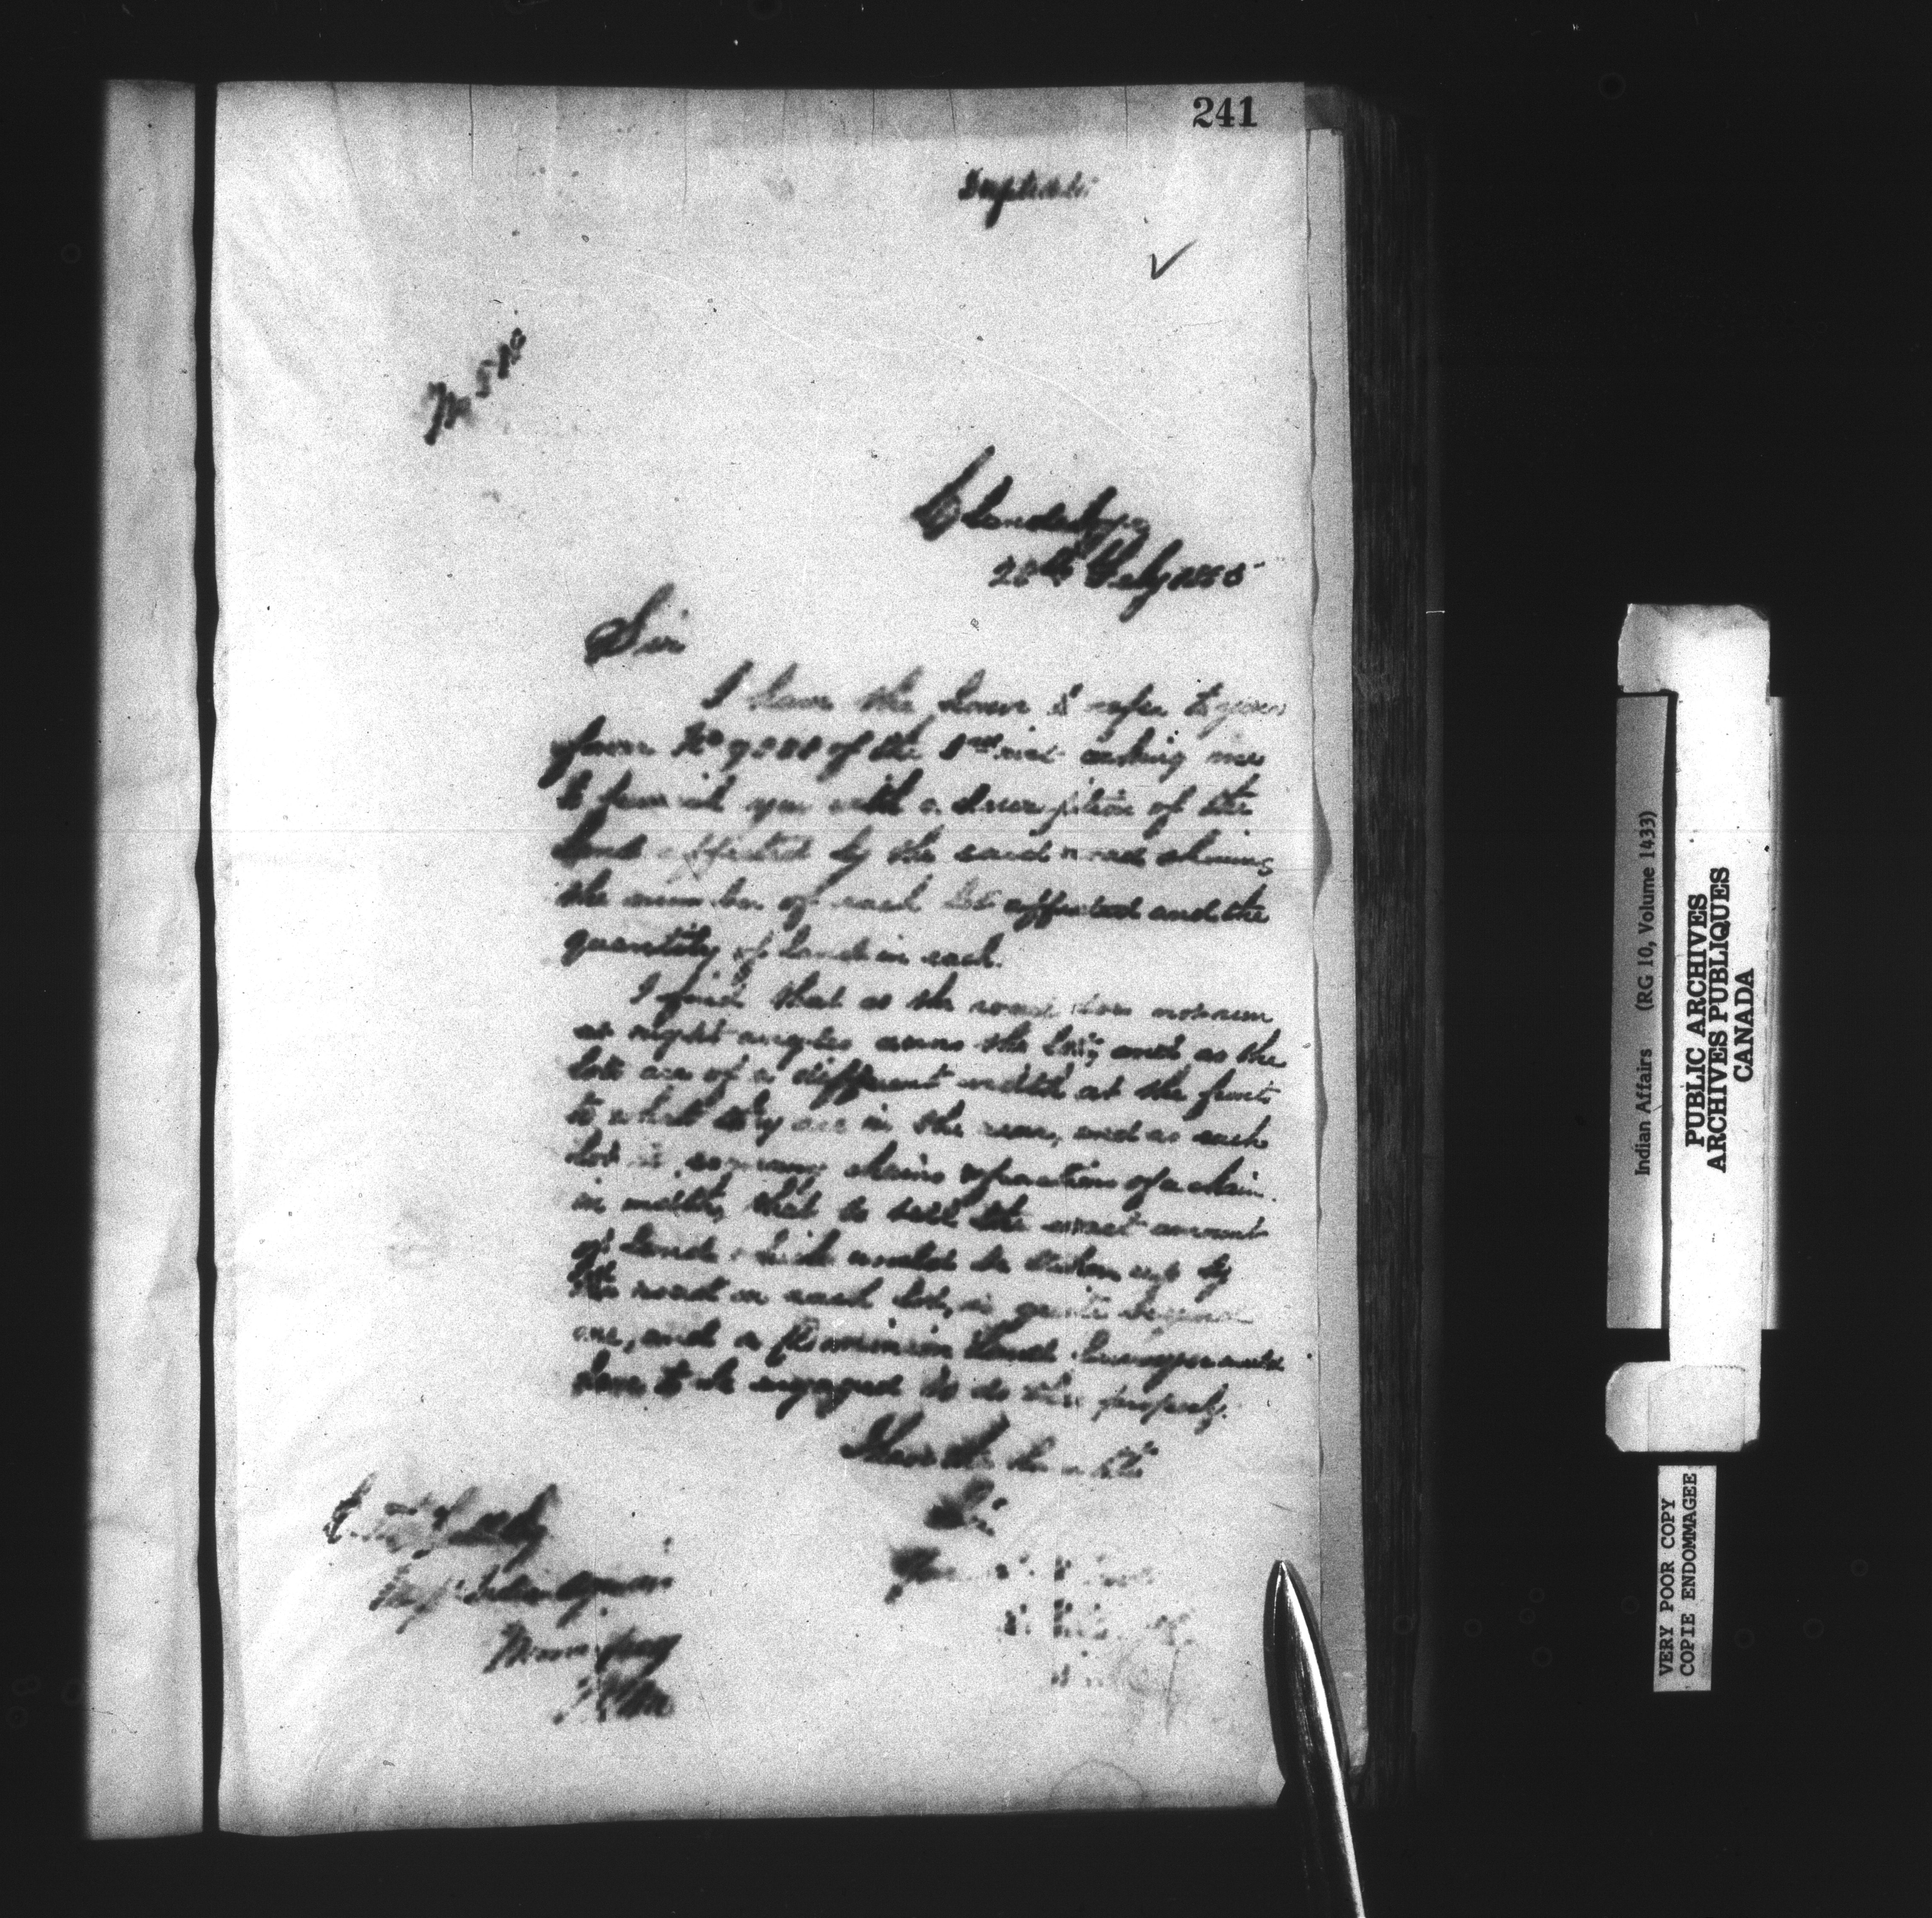 241
Duplicate
✓
Clandeboye
28th July 1885
Sir
I have the honor to refer to your
favor No of the inst asking me
to furnish you with a description of the
land affected by the said road showing
the number of each lot affected and the
quantity of land in each.
I find that as the road does not run
at right angles across the lots, and as the
lots are of a different width at the front
to what they are in the rear, and as each
lot is so many chains & fractions of a chain
in width, that to tell the exact amount
of land which would be taken up by
the road on each lot, is quite beyond
me, and a Dominion Land Surveyor would
have to be engaged to do this properly.
I have the honor to be
Sir
Your
Indian Agencies
Winnipeg
Indian Affairs (RG 10, Volume 1433)
PUBLIC ARCHIVES
ARCHIVES PUBLIQUES
CANADA
VERY POOR COPY
COPIE ENDOMMAGEE